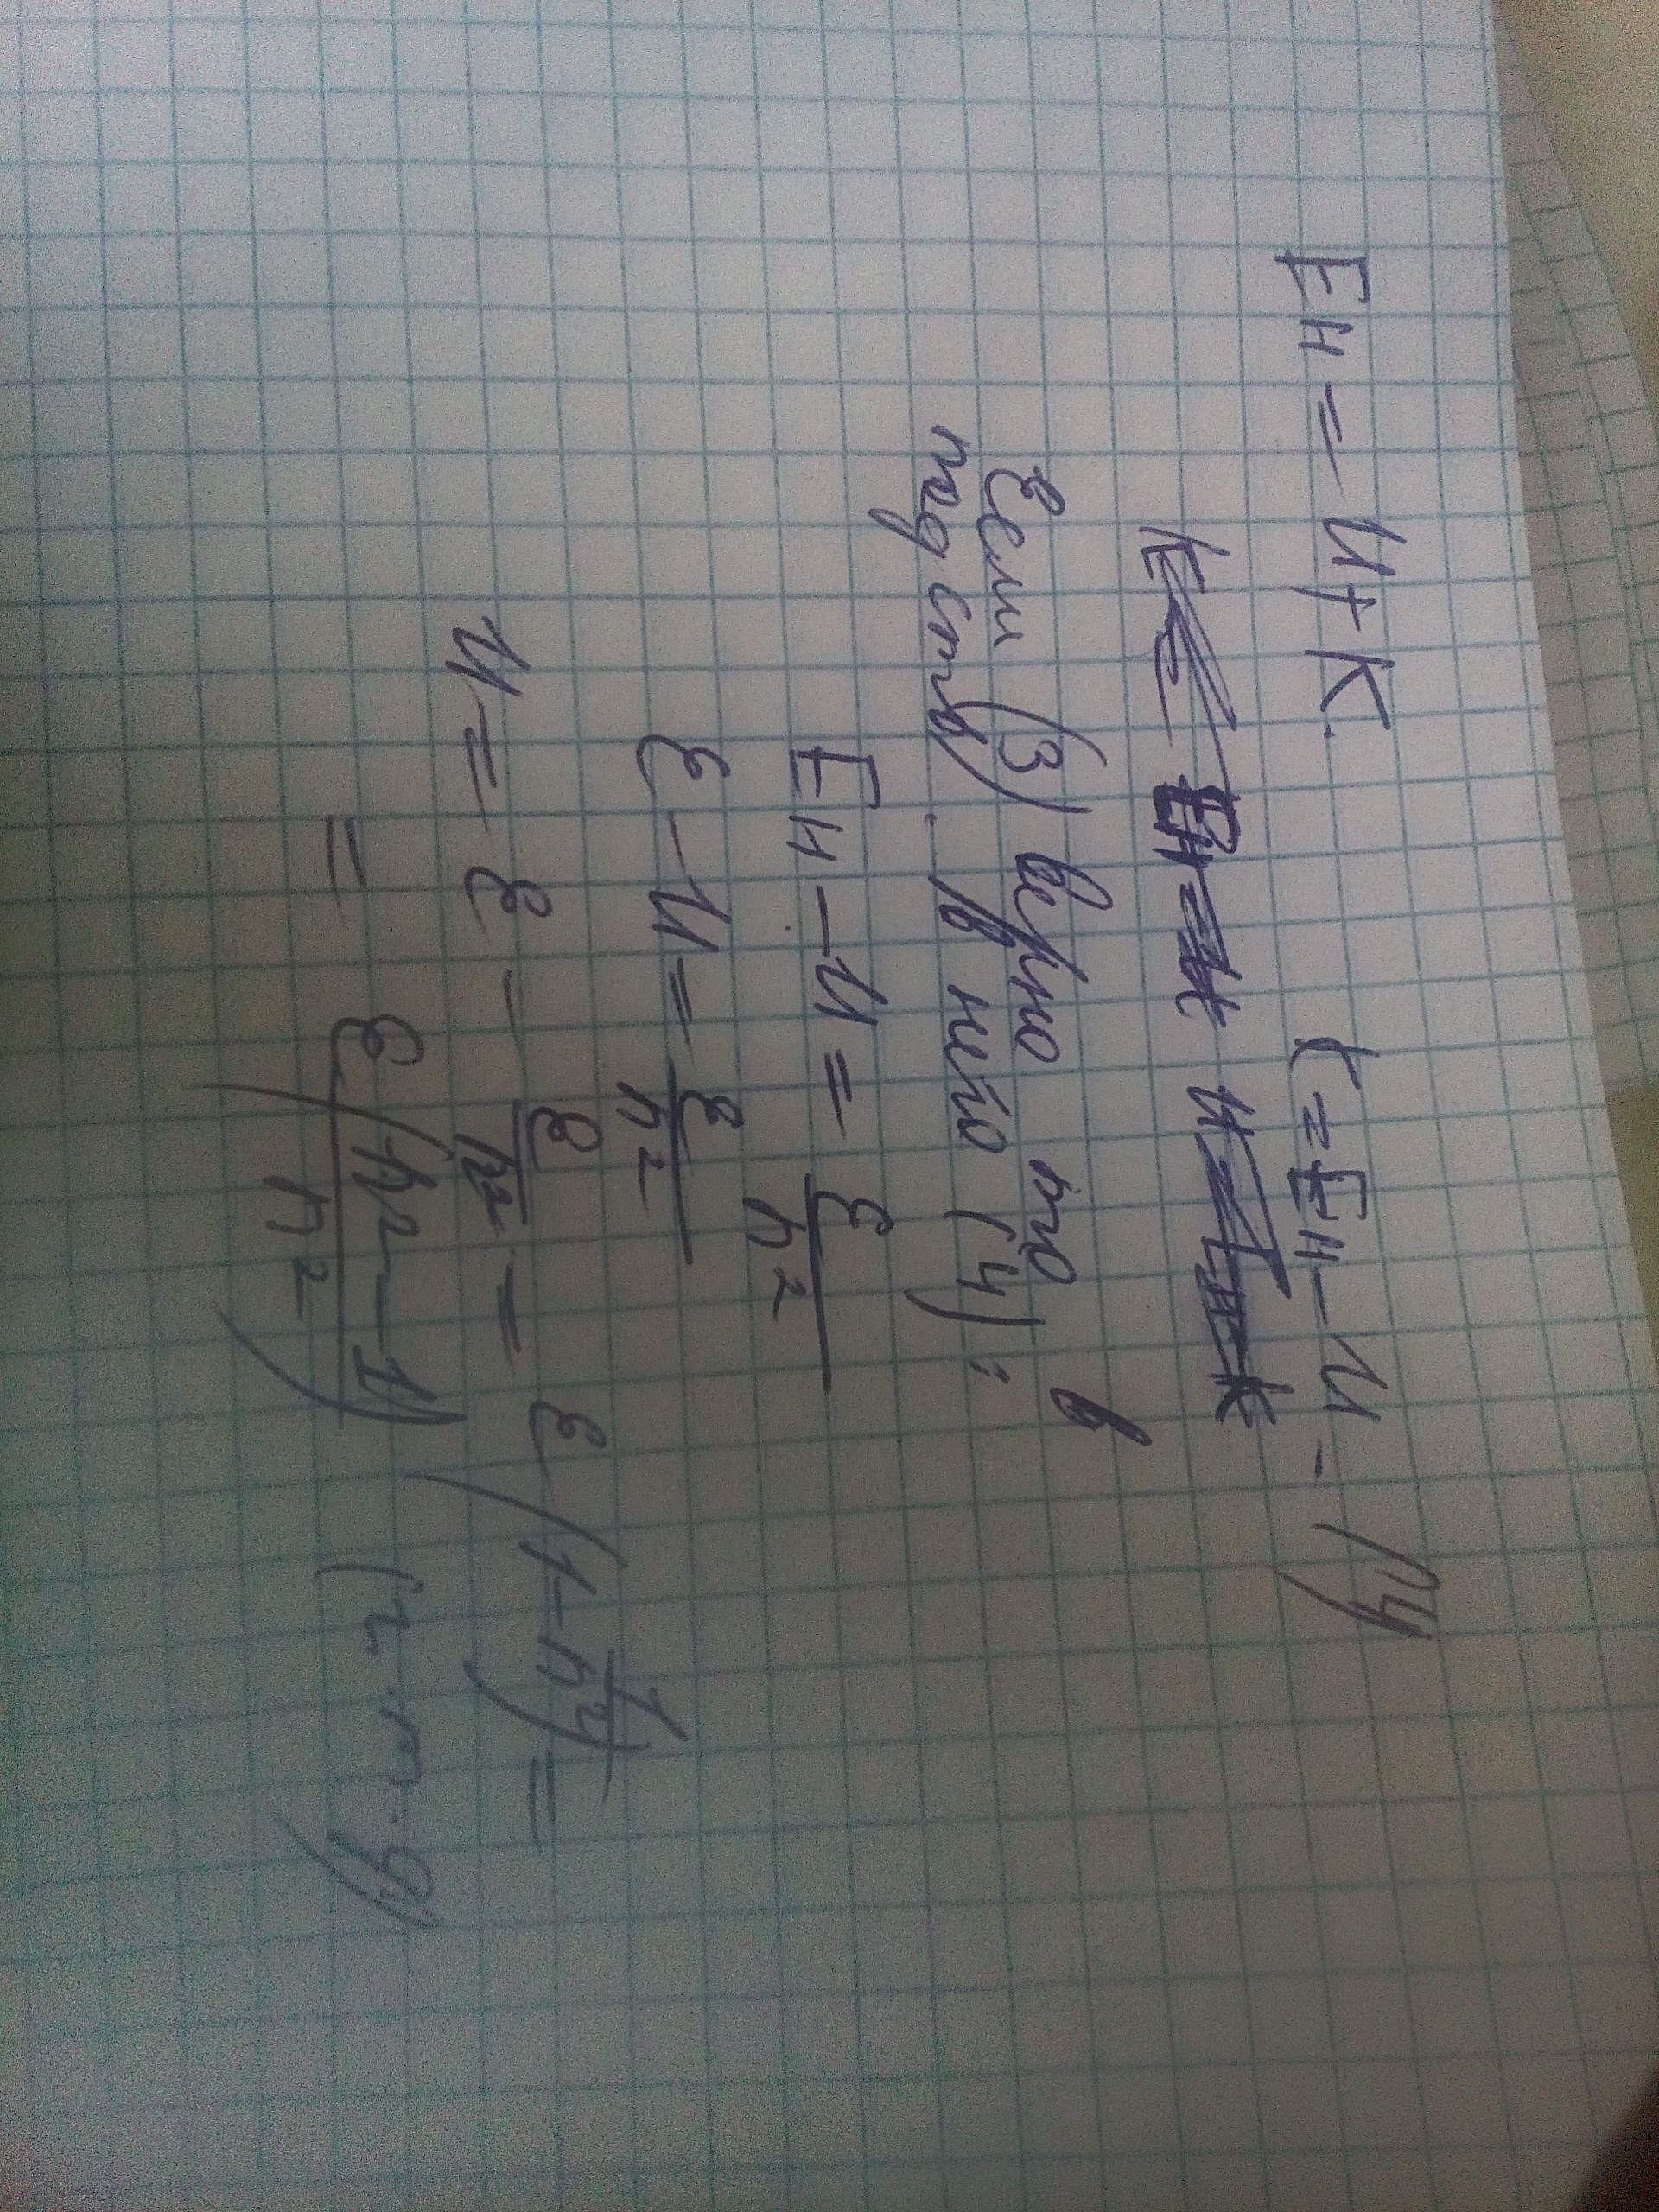 Eн = U + K.   K = Eн - U - (4)
Если (3) верно то в
подств. в него (4):
Eн - U = ε/n²
ε - U = ε/n²
U = ε - ε/n² = ε(1 - 1/n²) =
= ε(n² - 1)/n² (ч.т.д)